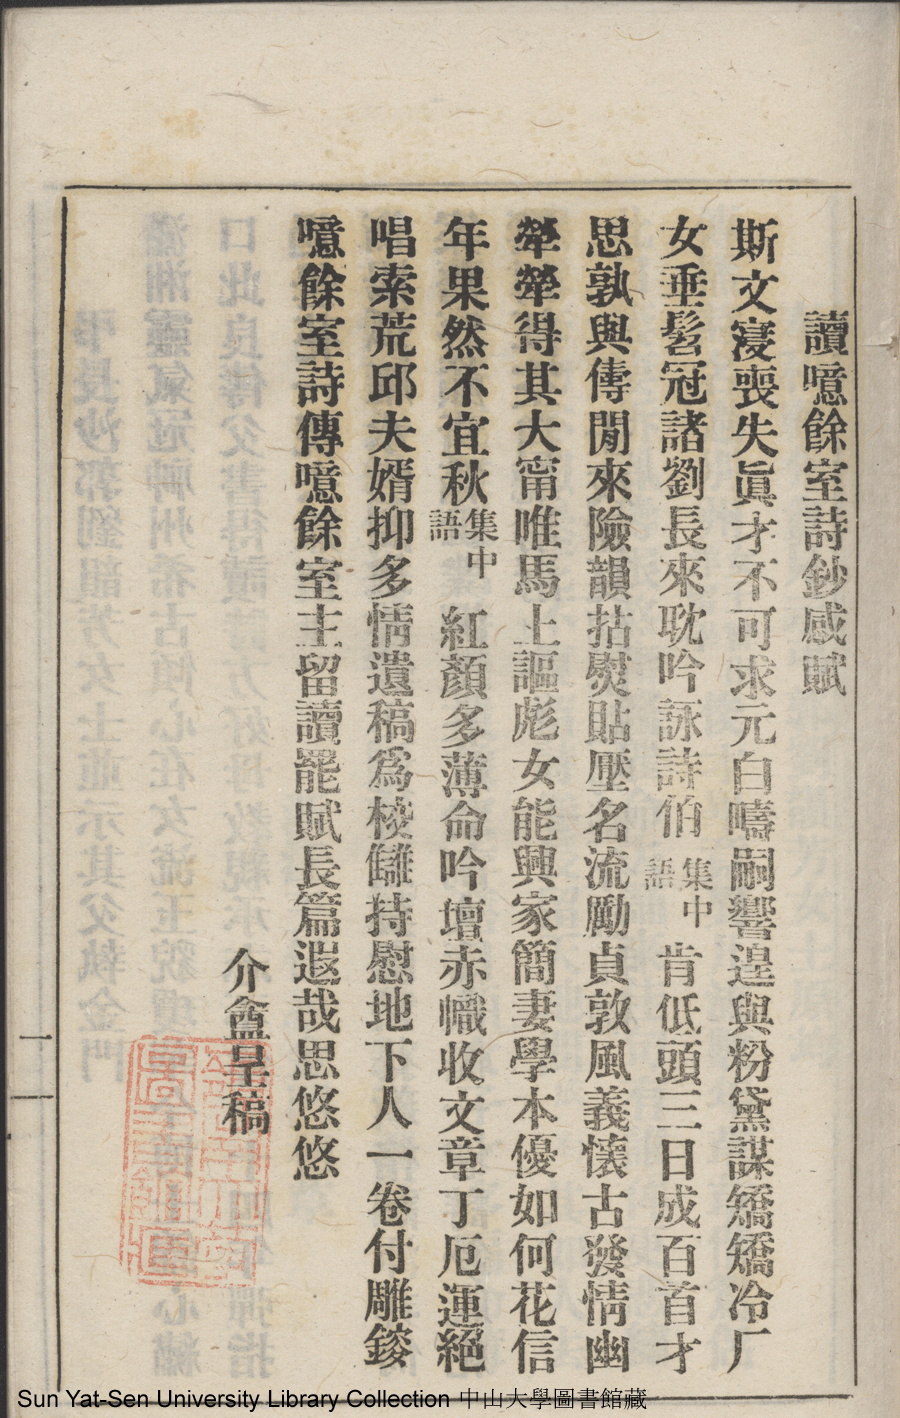 讀噫餘室詩鈔感賦
斯文寖喪失眞才不可求元白疇嗣響遑與粉黛謀矯矯冷厂
女垂髫冠諸劉長來耽吟詠詩伯集中語肯低頭三日成百首才
思孰與儔閒來險韻拈熨貼壓名流勵貞敦風義懷古發情幽
犖犖得其大甯唯馬上謳彪女能興家簡妻學本優如何花信
年果然不宜秋集中語紅顏多薄命吟壇赤幟收文章丁厄運絕
唱索荒邱夫婿抑多情遺稿爲校讎持慰地下人一卷付雕鎪
噫餘室詩傳噫餘室主留讀罷賦長篇遐哉思悠悠
介盦呈稿
一一
Sun Yat-Sen University Library Collection 中山大學圖書館藏